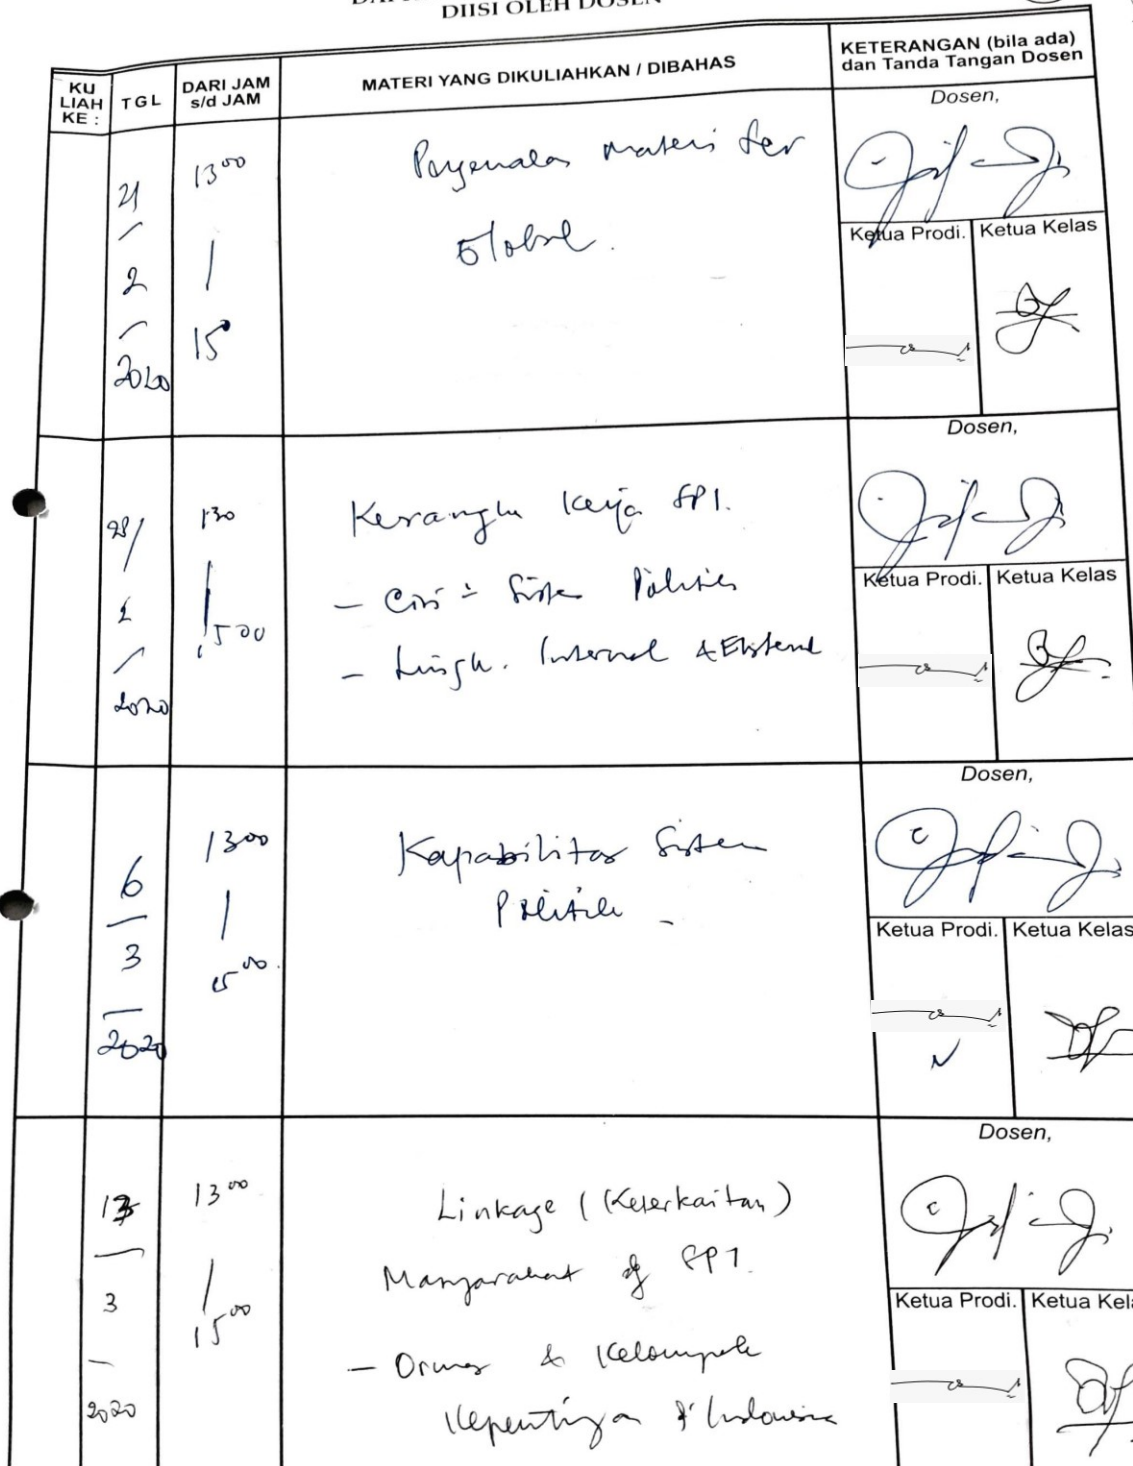 DIISI OLEH DOSEN
KU
LIAH
KE :
TGL
DARI JAM
s/d JAM
MATERI YANG DIKULIAHKAN / DIBAHAS
KETERANGAN (bila ada)
dan Tanda Tangan Dosen
21
2
2020
13 00
15
materi
Global
Dosen,
Ketua Prodi.
Ketua Kelas
28/
2
2020
1500
Kerangka Kerja SPI.
- Ciri = Sistem Politics
- Lingk. Internal & Eksternal
Dosen,
Ketua Prodi.
Ketua Kelas
6
3
2020
13 00
15 00
Kapabilitas Sistem
Politik -
Dosen,
Ketua Prodi.
Ketua Kelas
13
3
2020
13 00
15 00
Linkage (Keterkaitan)
Masyarakat dg SPI.
- Ormas & Kelompok
Kepentingan d' Indonesia
Dosen,
Ketua Prodi.
Ketua Kel